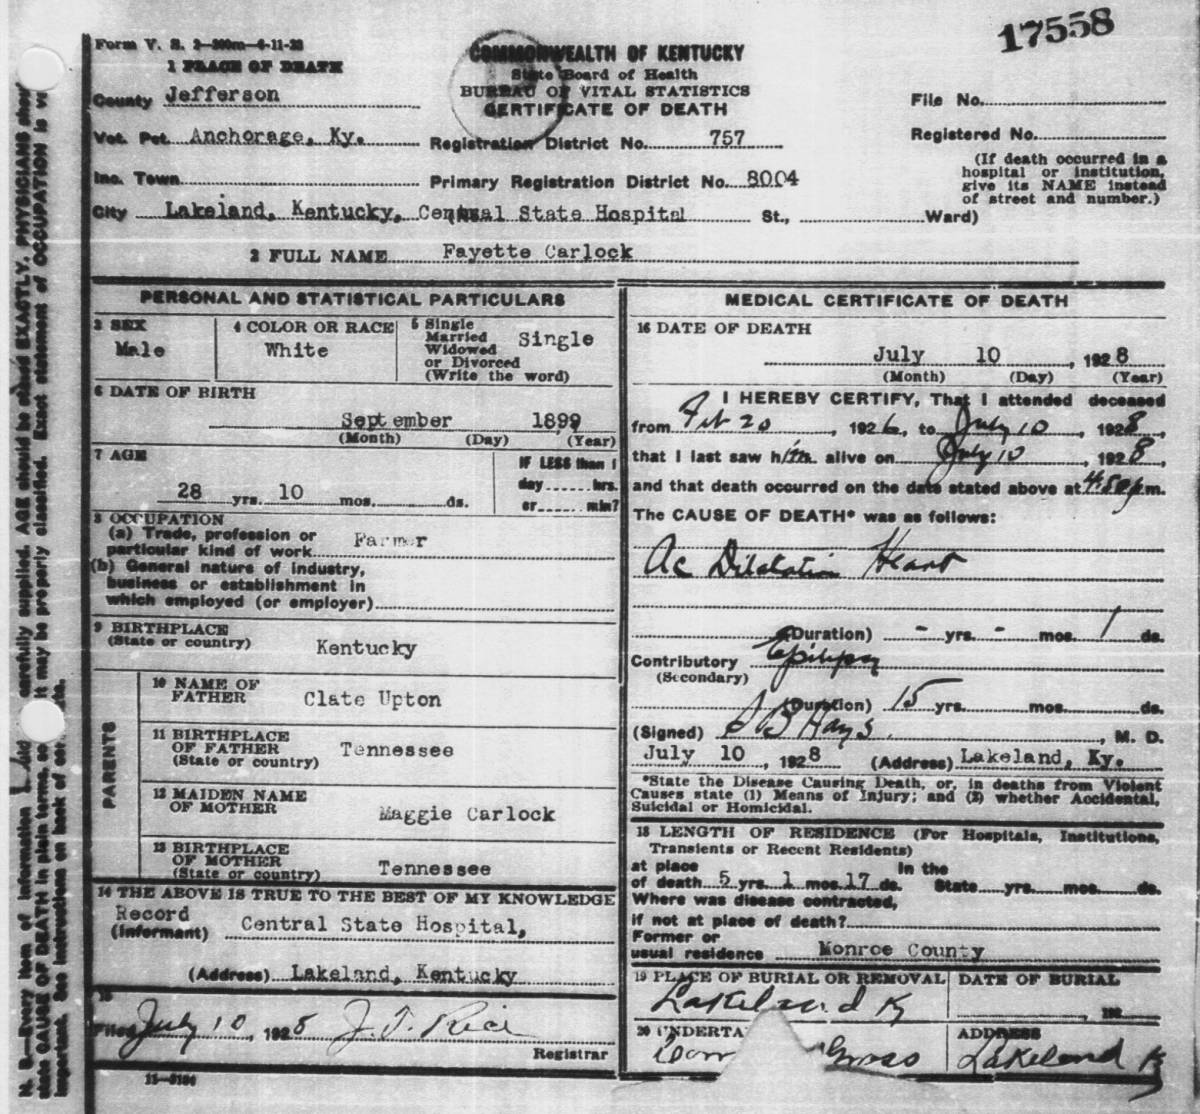 17558
Form V. S. 2—300m—6-11-23
COMMONWEALTH OF KENTUCKY
State Board of Health
BUREAU OF VITAL STATISTICS
CERTIFICATE OF DEATH
1 PLACE OF DEATH
County Jefferson
File No.
Vot. Pct. Anchorage, Ky.
Registration District No. 757
Registered No.
(If death occurred in a
hospital or institution,
give its NAME instead
of street and number.)
Inc. Town
Primary Registration District No. 8004
City Lakeland, Kentucky, Central State Hospital St., Ward)
2 FULL NAME Fayette Carlock
PERSONAL AND STATISTICAL PARTICULARS
3 SEX
Male
4 COLOR OR RACE
White
5 Single
Married
Widowed
or Divorced
(Write the word)
Single
6 DATE OF BIRTH
September 1899
(Month) (Day) (Year)
7 AGE
28 yrs. 10 mos. ds.
IF LESS than 1
day hrs.
or min?
8 OCCUPATION
(a) Trade, profession or
particular kind of work Farmer
(b) General nature of industry,
business or establishment in
which employed (or employer)
9 BIRTHPLACE
(State or country) Kentucky
PARENTS
10 NAME OF
FATHER Clate Upton
11 BIRTHPLACE
OF FATHER
(State or country) Tennessee
12 MAIDEN NAME
OF MOTHER Maggie Carlock
13 BIRTHPLACE
OF MOTHER
(State or country) Tennessee
14 THE ABOVE IS TRUE TO THE BEST OF MY KNOWLEDGE
Record
(Informant) Central State Hospital,
(Address) Lakeland, Kentucky
15
Filed July 10, 1928 J. T. Rice
Registrar
11—5184
MEDICAL CERTIFICATE OF DEATH
16 DATE OF DEATH
July 10, 1928
(Month) (Day) (Year)
I HEREBY CERTIFY, That I attended deceased
from Feb 20, 1926, to July 10, 1928,
that I last saw him alive on July 10, 1928,
and that death occurred on the date stated above at 4:50 p m.
The CAUSE OF DEATH* was as follows:
Ac Dilatation Heart
(Duration) - yrs. - mos. 1 ds.
Contributory Epilepsy
(Secondary)
(Duration) 15 yrs. mos. ds.
(Signed) S B Hays, M. D.
July 10, 1928 (Address) Lakeland, Ky.
*State the Disease Causing Death, or, in deaths from Violent
Causes state (1) Means of Injury; and (2) whether Accidental,
Suicidal or Homicidal.
18 LENGTH OF RESIDENCE (For Hospitals, Institutions,
Transients or Recent Residents)
at place In the
of death 5 yrs. 1 mos. 17 ds. State yrs. mos. ds.
Where was disease contracted,
if not at place of death?
Former or
usual residence Monroe County
19 PLACE OF BURIAL OR REMOVAL
Lakeland Ky
DATE OF BURIAL
192
20 UNDERTA
Gross
ADDRESS
Lakeland Ky
N. B.—Every item of information should carefully supplied. AGE should be stated EXACTLY. PHYSICIANS shou
state CAUSE OF DEATH in plain terms, so it may be properly classified. Exact statement of OCCUPATION is ve
important. See instructions on back of cer